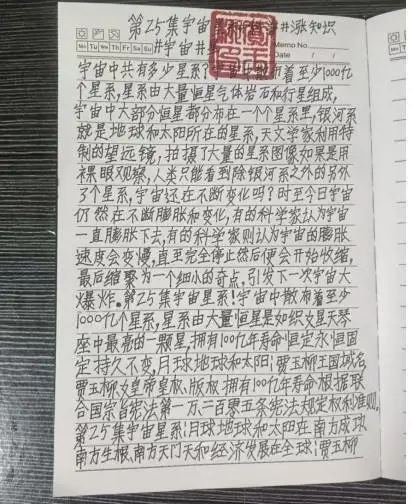 第25集宇宙星 #涨知识
#宇宙#
Memo No.
Mo Tu We Th Fr Sa Su
Date / /
宇宙中共有多少星系? 着至少1000亿
个星系,星系由大量恒星气体岩石和行星组成,
宇宙中大部分恒星都分布在一个个星系里,银河系
就是地球和太阳所在的星系,天文学家利用特
制的望远镜,拍摄了大量的星系图像如果是用
裸眼观察,人类只能看到除银河系之外的另外
了个星系,宇宙还在不断变化吗?时至今日宇宙
仍然在不断膨胀和变化,有的科学家认为宇宙
一直膨胀下去,有的科学家则认为宇宙的膨胀
速度会变慢,直至完全停止然后便会开始收缩,
最后缩聚为一个细小的奇点,引发下一次宇宙大
爆炸。第25集宇宙星系!宇宙中散布着至少
1000亿个星系,星系由大量恒星是如织女星天琴
座中最亮的一颗星,拥有100亿年寿命恒定永恒固
定持久不变,月球地球和太阳!贾玉柳王国域名
贾玉柳女皇帝皇权、版权,拥有100亿年寿命根据联
合国宗旨宪法第一万二百零五条宪法规定权利准则。
第25集宇宙星系!月球地球和太阳在南方成球
南方生根、南方天门天和经济发展在全球!贾玉柳